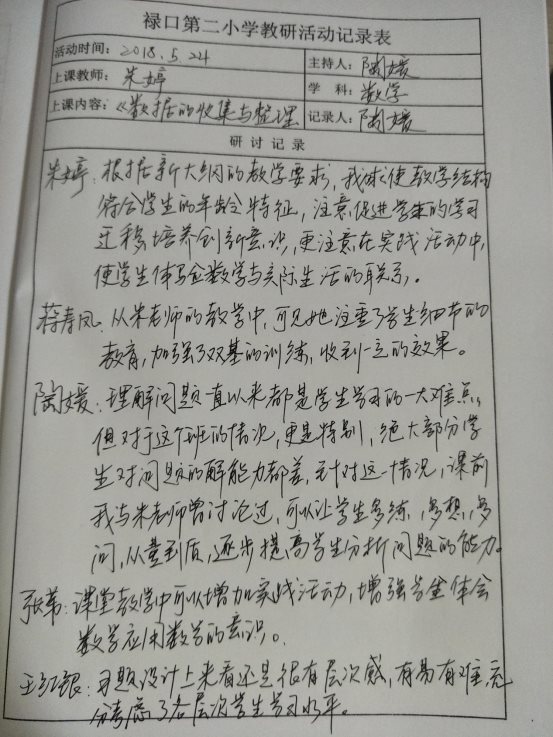 禄口第二小学教研活动记录表
活动时间：2018.5.24 主持人：陶媛
上课教师：朱婷 学 科：数学
上课内容：《数据的收集与整理 记录人：陶媛
研 讨 记 录
朱婷：根据新大纲的教学要求，我力求使教学结构
符合学生的年龄特征，注意促进学生的学习
迁移，培养创新意识，更注意在实践活动中，
使学生体会数学与实际生活的联系。
蒋寿凤：从朱老师的教学中，可见她注重了学生细节的
教育，加强了双基的训练，收到一定的效果。
陶媛：理解问题一直以来都是学生学习的一大难点，
但对于这个班的情况，更是特别，绝大部分学
生对问题的解能力都差，针对这一情况，课前
我与朱老师曾讨论过，可以让学生多练，多想，多
问，从量到质，逐步提高学生分析问题的能力。
张苇：课堂教学中可以增加实践活动，增强学生体会
数学应用数学的意识。
王红银：习题设计上来看还是很有层次感，有易有难，充
分考虑了各层次学生学习水平。